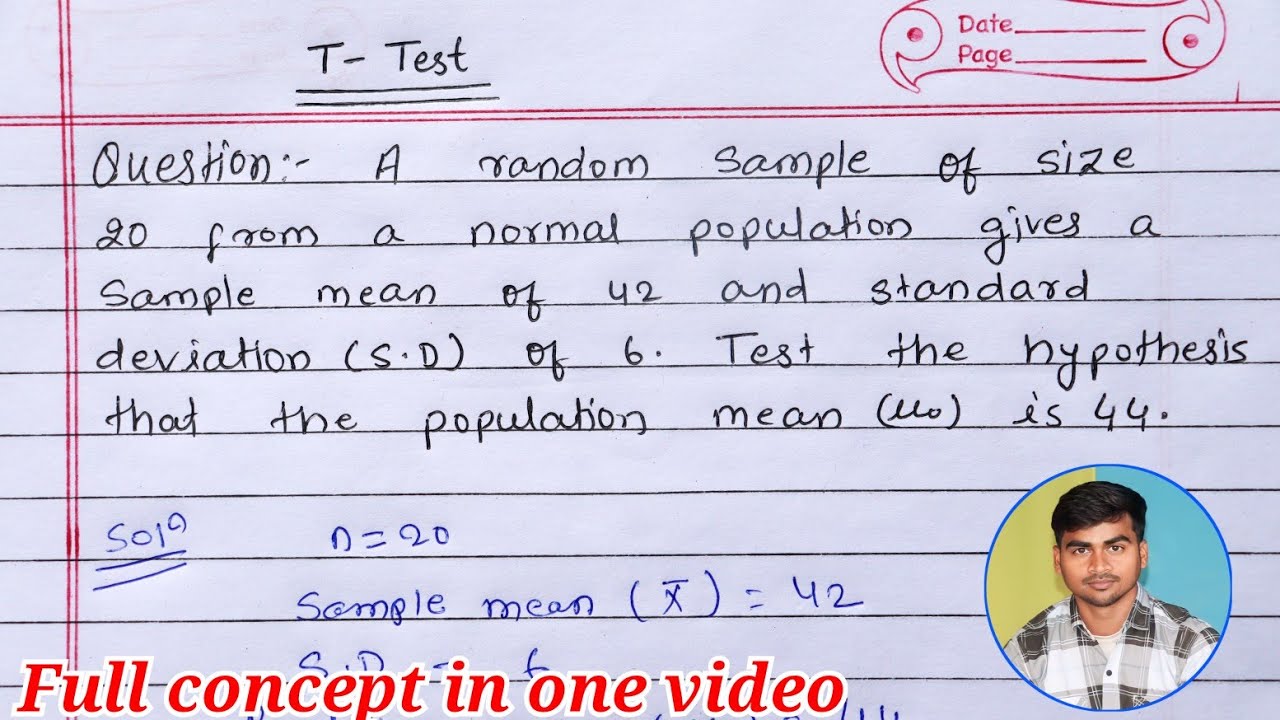 T- Test
Date
Page
Question:- A random sample of size
20 from a normal population gives a
sample mean of 42 and standard
deviation (S.D) of 6. Test the hypothesis
that the population mean (μ₀) is 44.
Solⁿ n = 20
Sample mean (x̄) = 42
S.D = 6
Full concept in one video